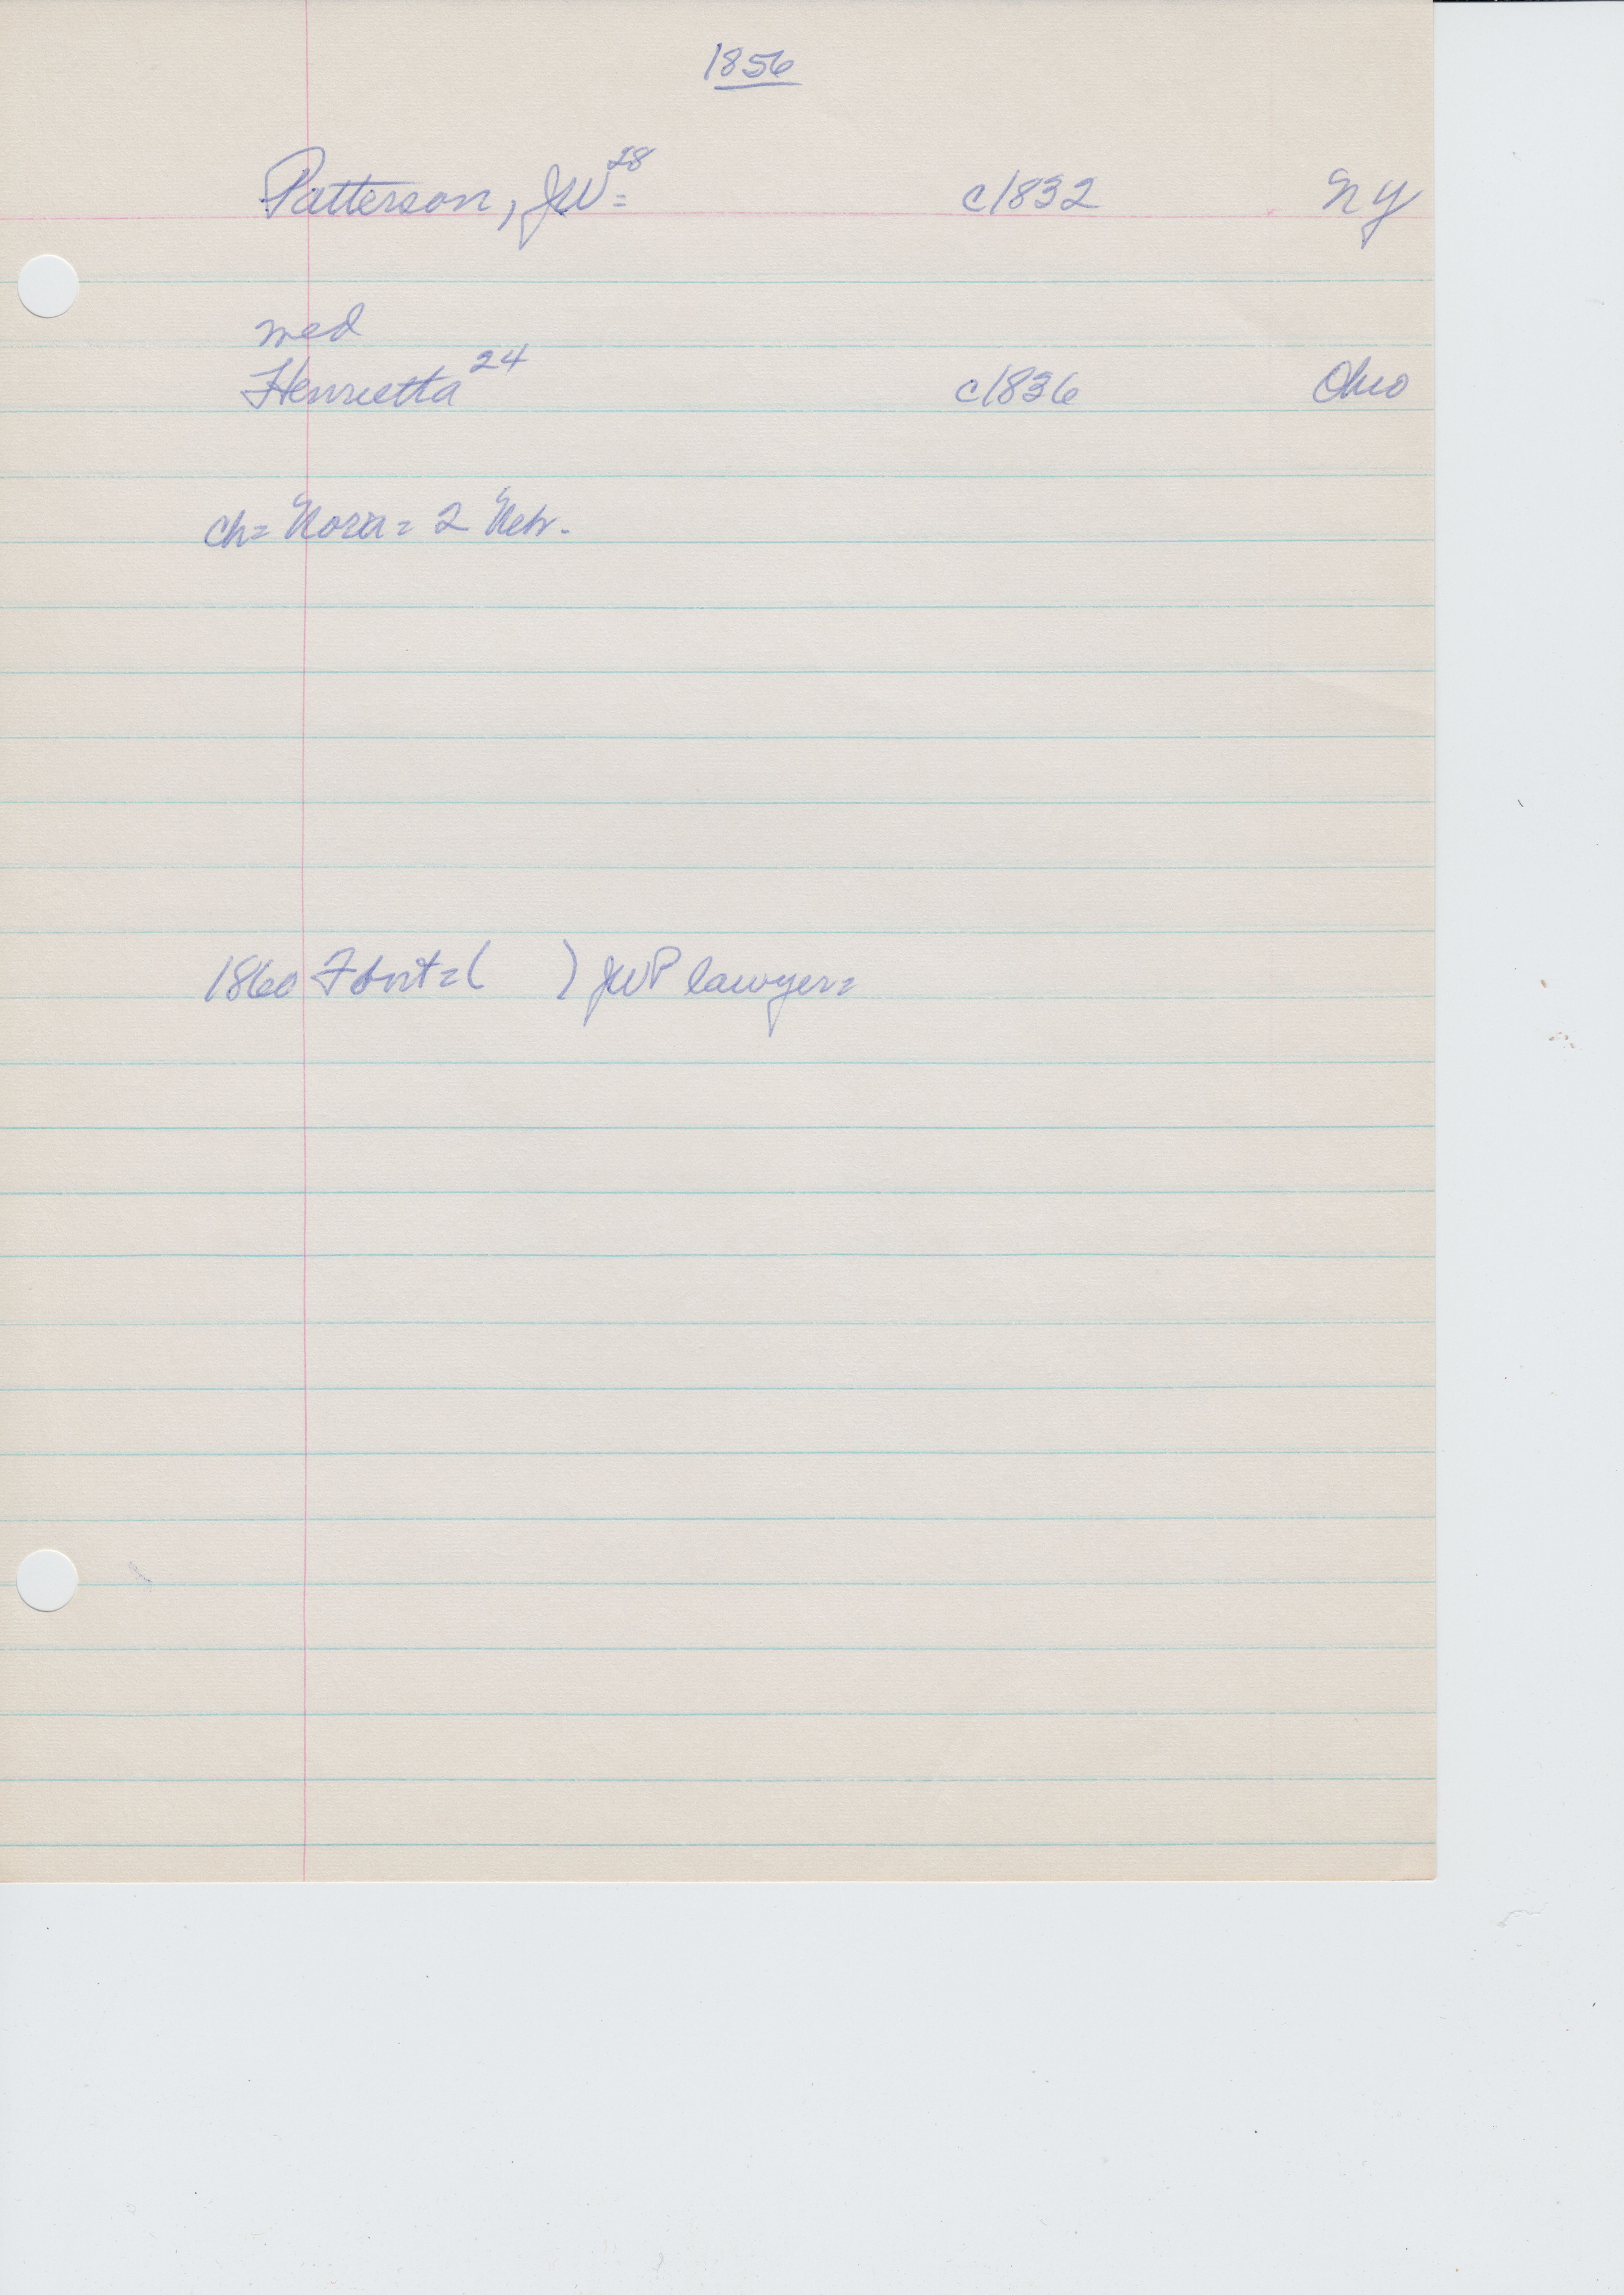 1856
Patterson, JW= 28 c1832 NY
med
Henrietta 24 c1836 Ohio
ch= Nora= 2 Nebr.
1860 ( ) JWP lawyer=